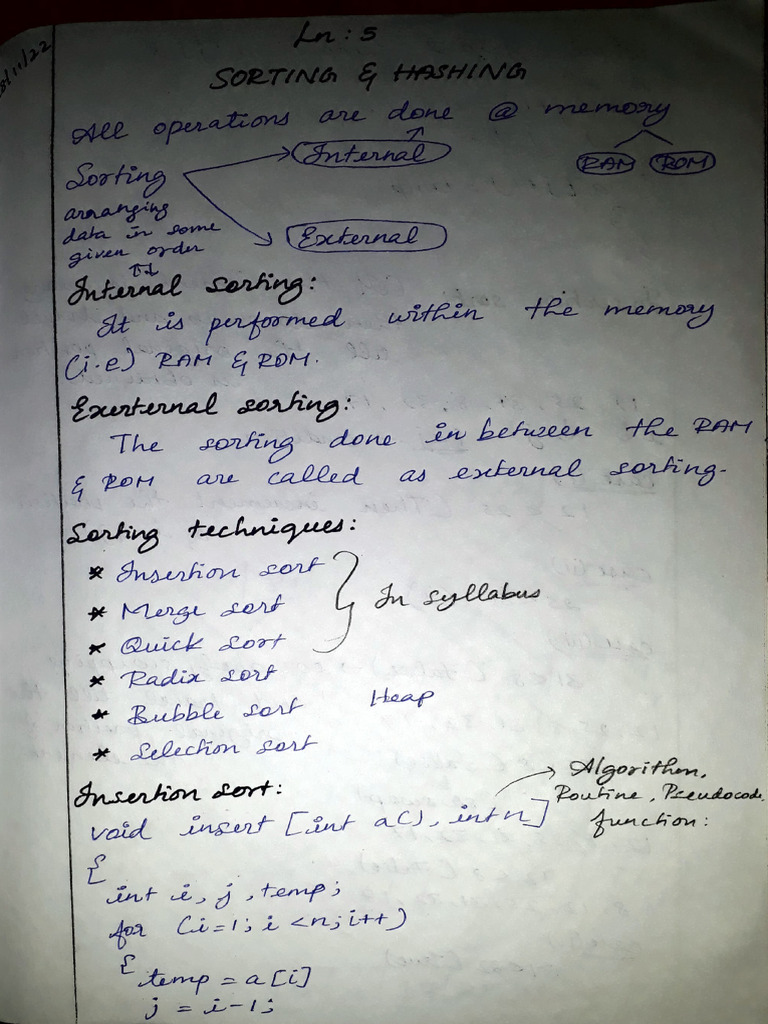 /11/22
Ln : 5
SORTING & HASHING
All operations are done @ memory
Internal
RAM ROM
Sorting
arranging
data in some
given order
External
Internal sorting:
It is performed within the memory
(i.e) RAM & ROM.
Exerternal sorting:
The sorting done in between the RAM
& ROM are called as external sorting.
Sorting techniques:
* Insertion sort
* Merge sort
* Quick sort
In syllabus
* Radix sort
* Bubble sort Heap
* Selection sort
Insertion sort:
Algorithm,
Routine, Pseudocode,
function:
void insert [int a(), int n]
{
int i, j, temp;
for (i=1; i<n; i++)
{
temp = a[i]
j = i-1;